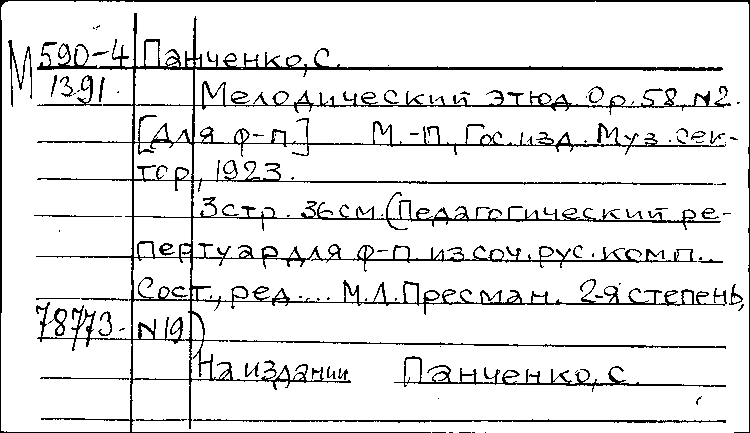 М 590-4 Панченко, С.
1391. Мелодический этюд. Ор. 58, N2.
[Для ф-п.] М.-П., Гос. изд. Муз. сек-
тор, 1923.
3 стр. 36 см. (Педагогический ре-
пертуар для ф-п. из соч. рус. комп..
Сост., ред.... М.Л. Пресман. 2-я степень,
78773. N 19)
На издании Панченко, С.